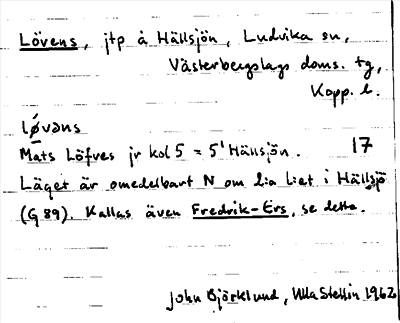 Lövens, jtp å Hällsjön, Ludvika sn,
Västerbergslags doms. tg,
Kopp. l.
lø̀vəns
Mats Löfves jr kol 5 = 5¹ Hällsjön. 17
Läget är omedelbart N om 2:a l:et i Hällsjö
(G 89). Kallas även Fredrik-Ers, se detta.
John Björklund, Ulla Stellin 1962